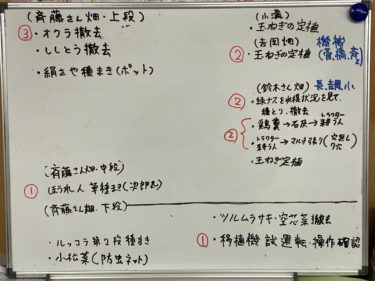 (斉藤さん畑・上段)
③・オクラ撤去
・ししとう撤去
・絹さや種まき(ポット)
(永濃)
・玉ねぎの定植
(吉田畑) 機械
②・玉ねぎの定植
(鈴木さん畑)
②・緑ナスを収穫状況を見て、
種とり、撤去
②・鶏糞→石灰→トラクター
トラクター
→マルチ張り
・玉ねぎ定植
(斉藤さん畑・中段)
①ほうれん草種まき(次郎丸)
(斉藤さん畑・下段)
・ルッコラ第2段種まき
・小松菜(防虫ネット)
・ツルムラサキ・空芯菜撤去
①・移植機試運転・操作確認